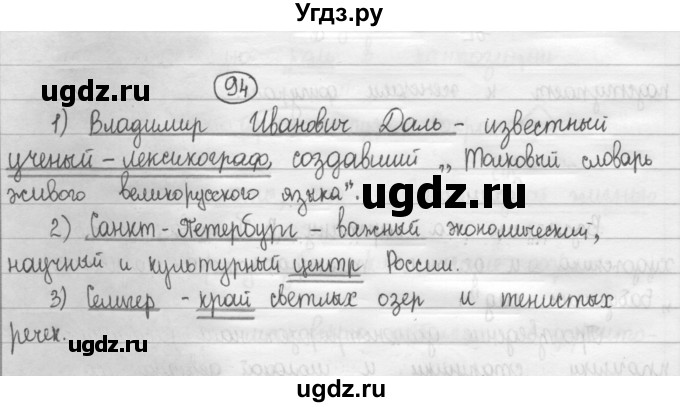 Угдз.ру
94
ugdz.ru
ugdz.ru
1) Владимир Иванович Даль - известный
ученый - лексикограф, создавший „Толковый словарь
живого великорусского языка".
ugdz.ru
2) Санкт - Петербург - важный экономический,
научный и культурный центр России.
3) Селигер - край светлых озер и тенистых
речек.
ugdz.ru
ugdz.ru
ugdz.ru